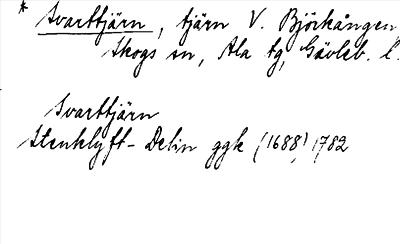 * Svarttjärn, tjärn V. Björkången
Skogs sn, Ala tg, Gävleb. l.
Svarttjärn
Stenklyft- Delin ggk (1688) 1782